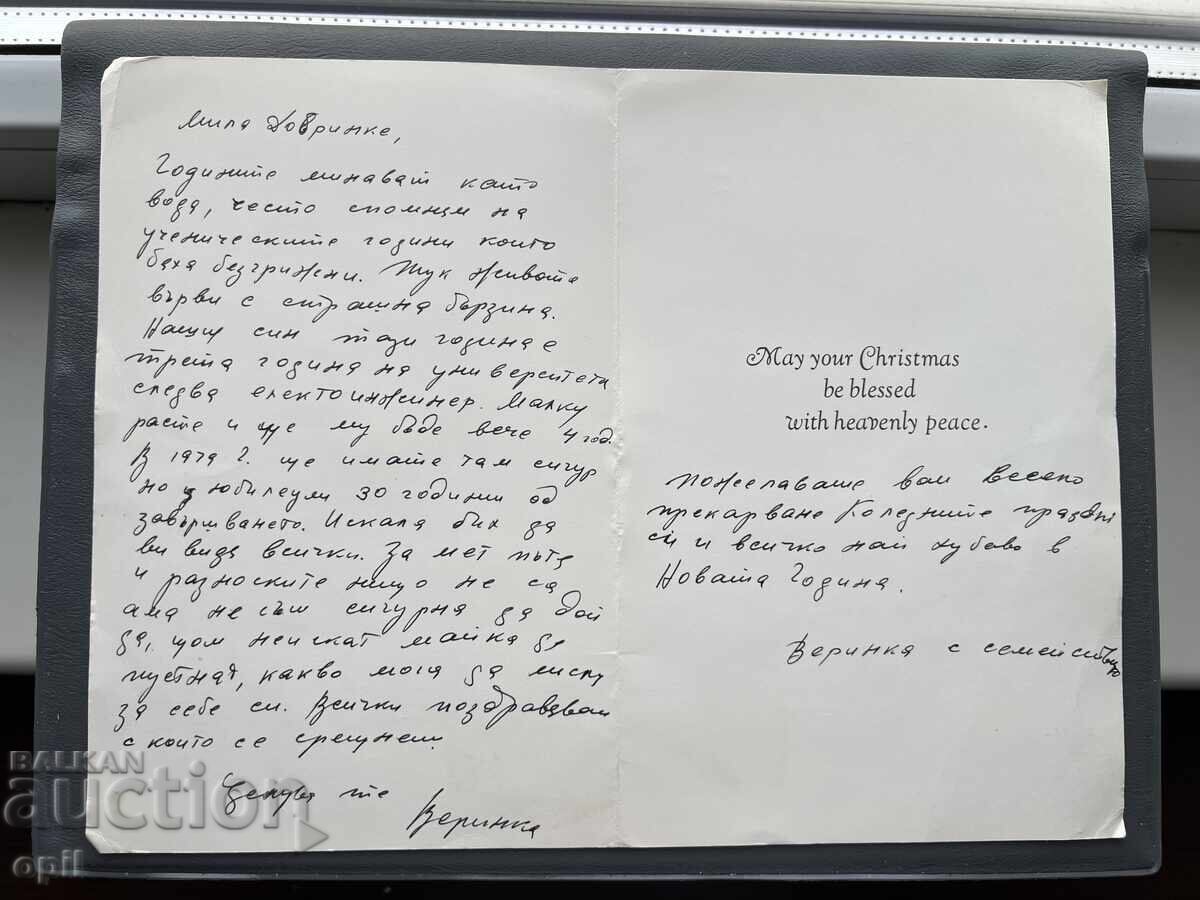 Мила Добринке,
Годините минават като
вода, често спомням на
ученическите години които
бяха безгрижни. Тук живота
върви с страшна бързина.
Нашия син тази година е
трета година на университета
следва електоинжинер. Малку
расте и ще му бъде вече 4 год.
В 1979 г. ще имате там сигур
но юбилеули 30 години од
завършването. Искала бих да
ви видя всички. За мет пътя
и разноските нищо не са
ама не съм сигурна да дой
да, щом неискат майка да
пуснат, какво мога да мисля
за себе си. Всички поздравявам
с които се срещнеш.
Целува те
Веринка
May your Christmas
be blessed
with heavenly peace.
пожелаваме вам весело
прекарване Коледните празни
си и всичко най хубаво в
Новата Година.
Веринка с семейство
BALKAN
auction
opil